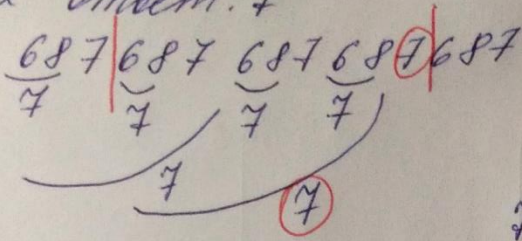 ответ: 7
687|687 687 687|687
7 7 7 7
7
7